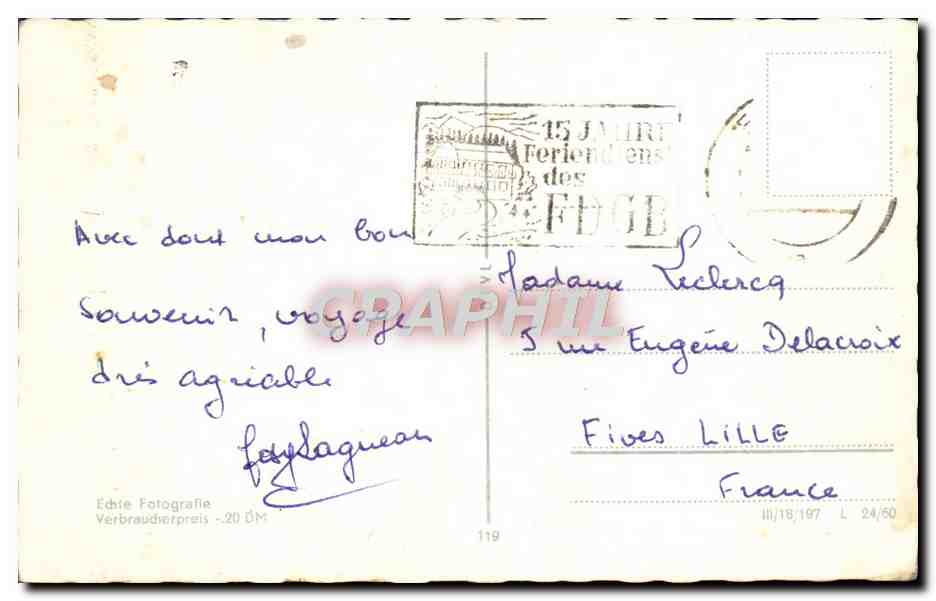 15 JAHRE
Feriendienst
des
FDGB
Avec tout mon bon
souvenir, voyage
très agréable
Madame Leclercq
5 rue Eugène Delacroix
Fives LILLE
France
GRAPHIL
Echte Fotografie
Verbraucherpreis -.20 DM
119
III/18/197 L 24/60